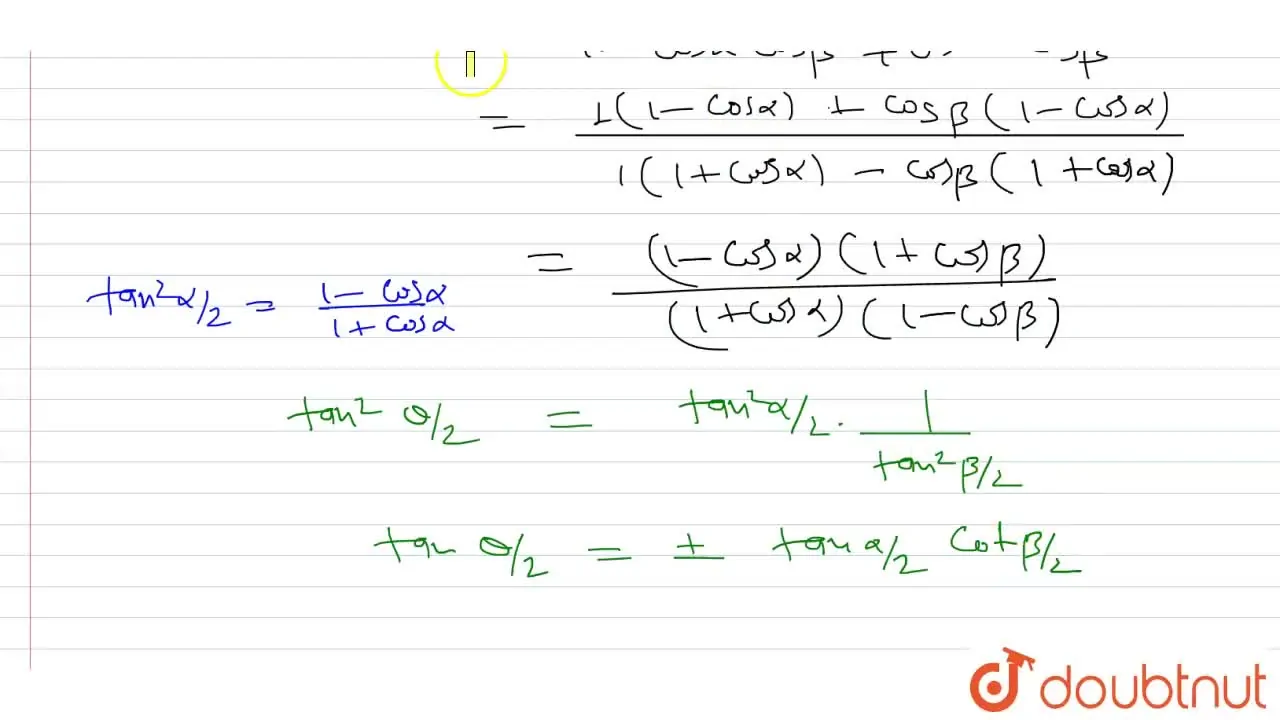 = 1(1 - cosα) + cosβ(1 - cosα) / 1(1 + cosα) - cosβ(1 + cosα)
= (1 - cosα)(1 + cosβ) / (1 + cosα)(1 - cosβ)
tan²α/2 = 1 - cosα / 1 + cosα
tan² θ/2 = tan²α/2 · 1 / tan²β/2
tan θ/2 = ± tan α/2 cot β/2
doubtnut